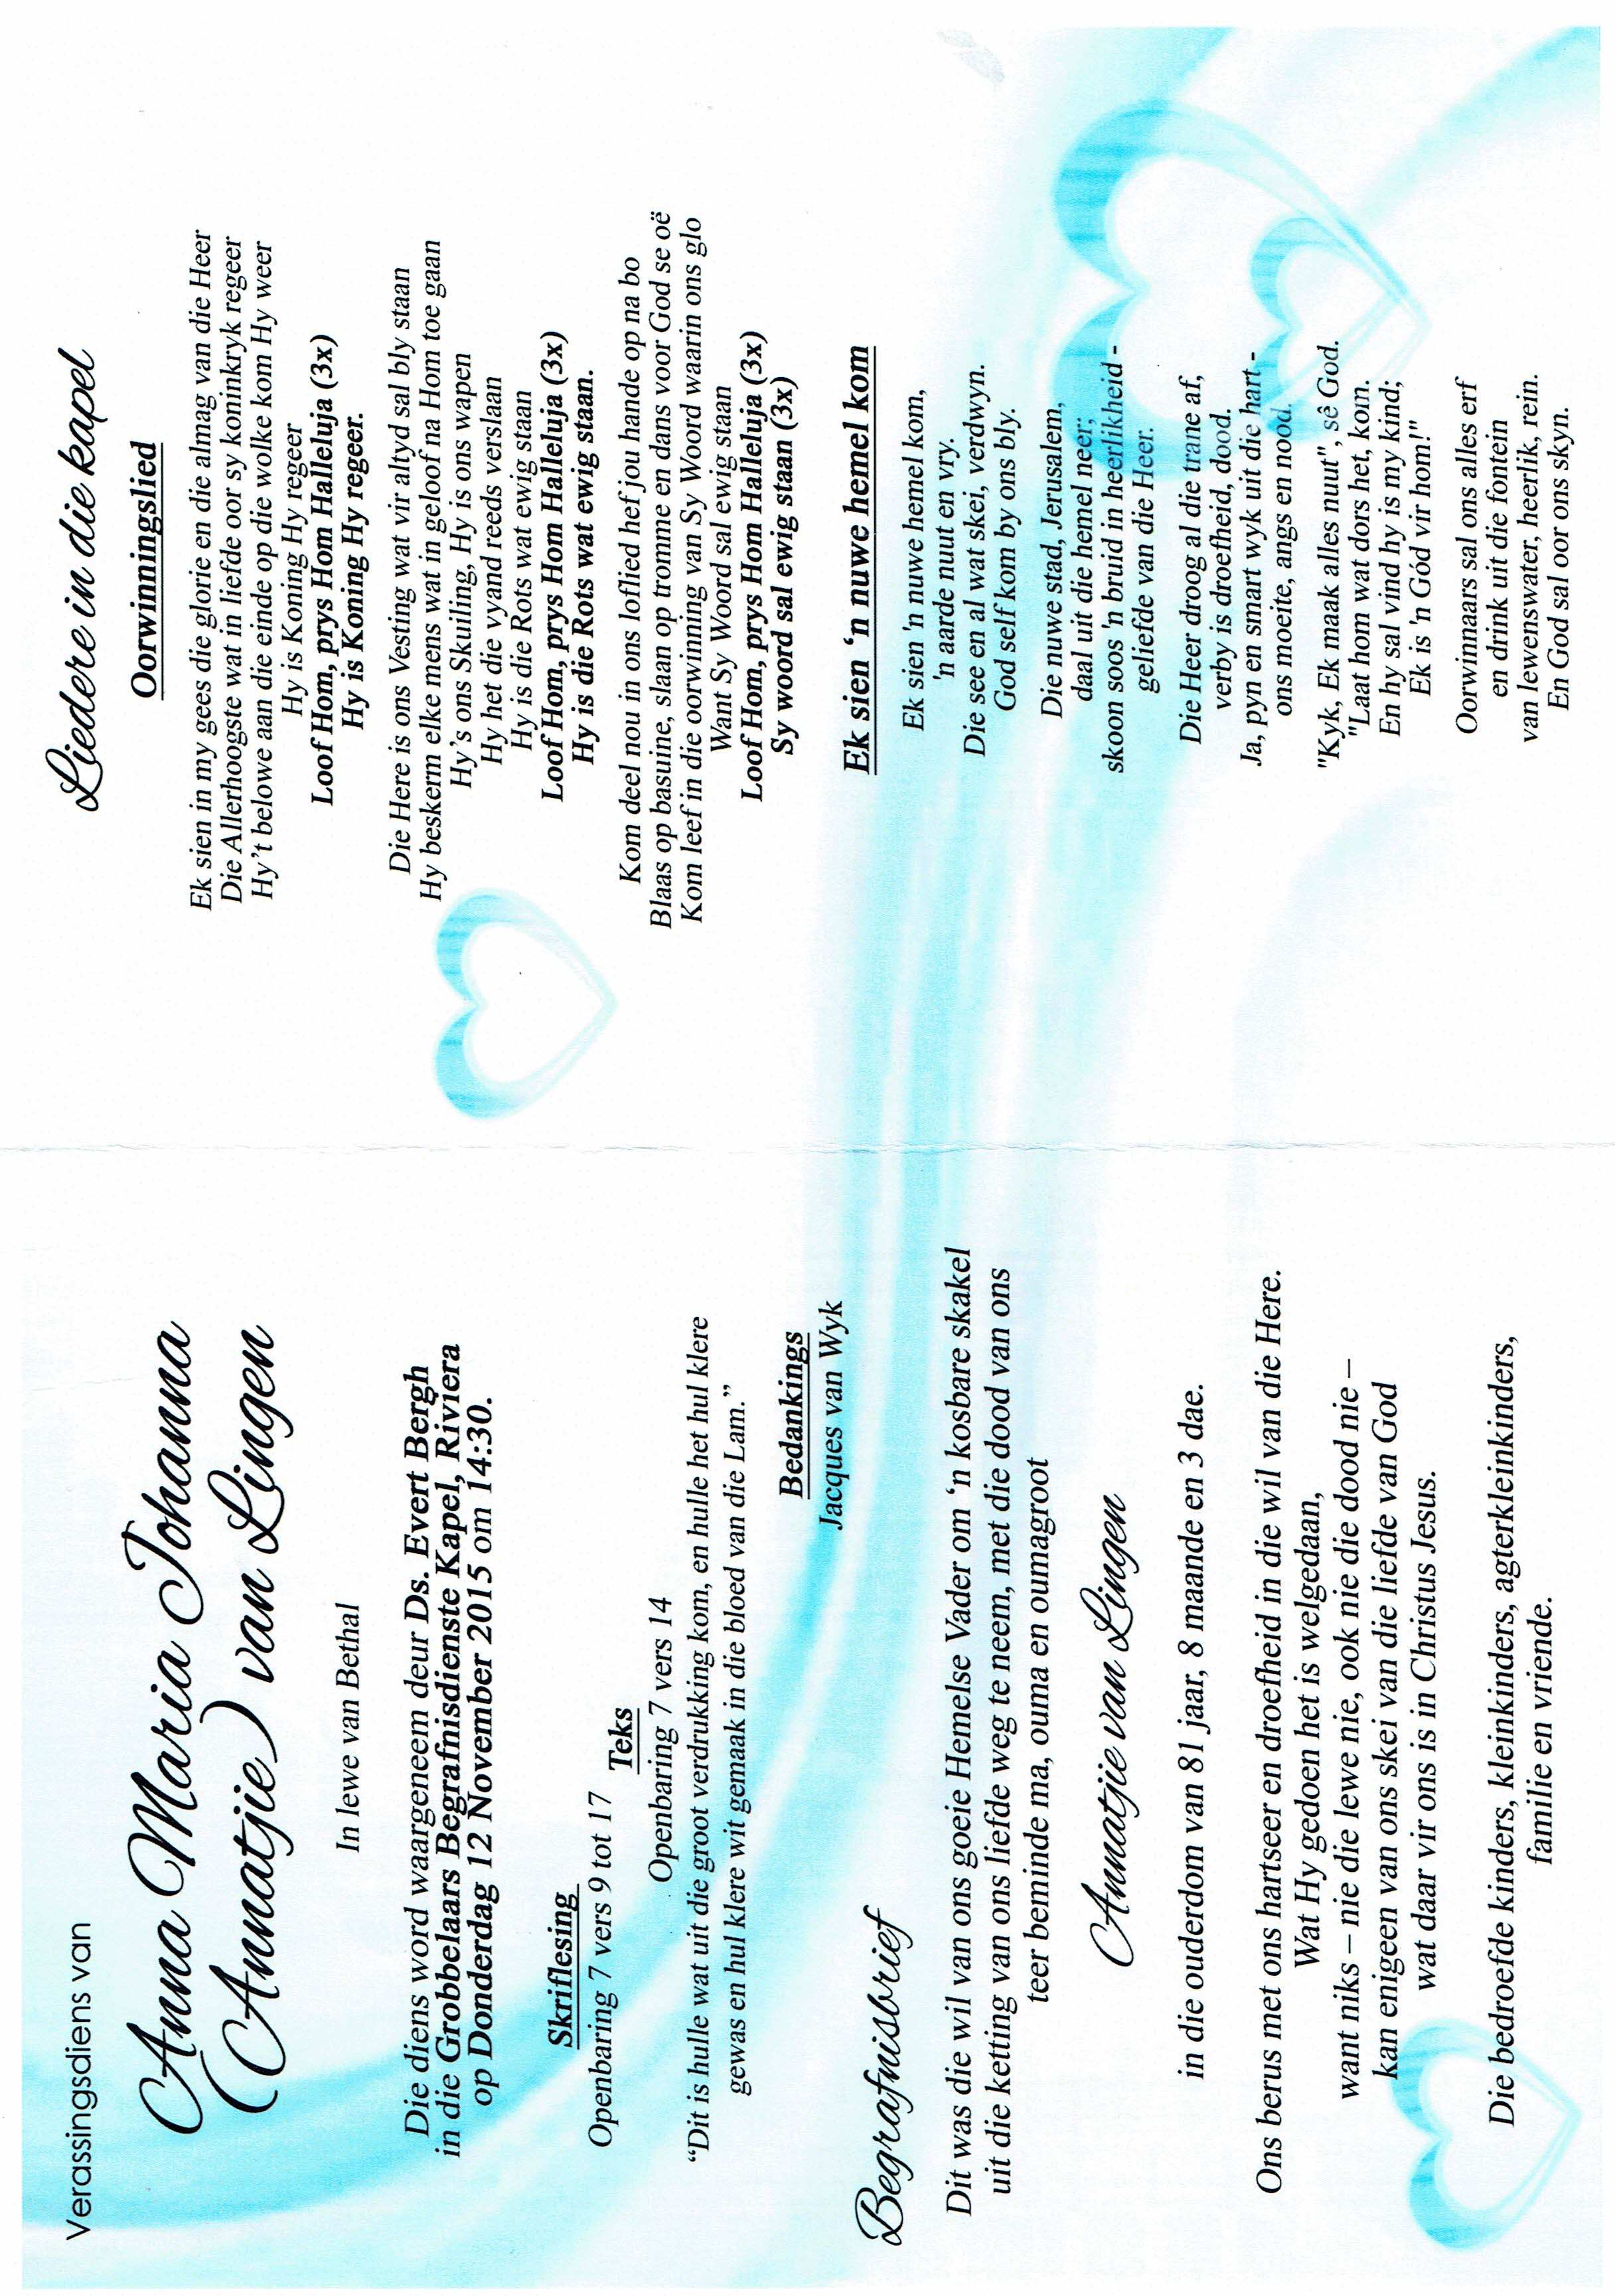 Verassingsdiens van
Anna Maria Johanna
(Annatjie) van Lingen
In lewe van Bethal
Die diens word waargeneem deur Ds. Evert Bergh
in die Grobbelaars Begrafnisdienste Kapel, Riviera
op Donderdag 12 November 2015 om 14:30.
Skriflesing
Openbaring 7 vers 9 tot 17
Teks
Openbaring 7 vers 14
“Dit is hulle wat uit die groot verdrukking kom, en hulle het hul klere
gewas en hul klere wit gemaak in die bloed van die Lam.”
Bedankings
Jacques van Wyk
Begrafnisbrief
Dit was die wil van ons goeie Hemelse Vader om ‘n kosbare skakel
uit die ketting van ons liefde weg te neem, met die dood van ons
teer beminde ma, ouma en oumagroot
Annatjie van Lingen
in die ouderdom van 81 jaar, 8 maande en 3 dae.
Ons berus met ons hartseer en droefheid in die wil van die Here.
Wat Hy gedoen het is welgedaan,
want niks – nie die lewe nie, ook nie die dood nie –
kan enigeen van ons skei van die liefde van God
wat daar vir ons is in Christus Jesus.
Die bedroefde kinders, kleinkinders, agterkleinkinders,
familie en vriende.
Liedere in die kapel
Oorwinningslied
Ek sien in my gees die glorie en die almag van die Heer
Die Allerhoogste wat in liefde oor sy koninkryk regeer
Hy't belowe aan die einde op die wolke kom Hy weer
Hy is Koning Hy regeer
Loof Hom, prys Hom Halleluja (3x)
Hy is Koning Hy regeer.
Die Here is ons Vesting wat vir altyd sal bly staan
Hy beskerm elke mens wat in geloof na Hom toe gaan
Hy's ons Skuiling, Hy is ons wapen
Hy het die vyand reeds verslaan
Hy is die Rots wat ewig staan
Loof Hom, prys Hom Halleluja (3x)
Hy is die Rots wat ewig staan.
Kom deel nou in ons loflied hef jou hande op na bo
Blaas op basuine, slaan op tromme en dans voor God se oë
Kom leef in die oorwinning van Sy Woord waarin ons glo
Want Sy Woord sal ewig staan
Loof Hom, prys Hom Halleluja (3x)
Sy woord sal ewig staan (3x)
Ek sien ‘n nuwe hemel kom
Ek sien 'n nuwe hemel kom,
'n aarde nuut en vry.
Die see en al wat skei, verdwyn.
God self kom by ons bly.
Die nuwe stad, Jerusalem,
daal uit die hemel neer;
skoon soos 'n bruid in heerlikheid -
geliefde van die Heer.
Die Heer droog al die trane af,
verby is droefheid, dood.
Ja, pyn en smart wyk uit die hart -
ons moeite, angs en nood.
"Kyk, Ek maak alles nuut", sê God.
"Laat hom wat dors het, kom.
En hy sal vind hy is my kind;
Ek is 'n Gód vir hom!"
Oorwinnaars sal ons alles erf
en drink uit die fontein
van lewenswater, heerlik, rein.
En God sal oor ons skyn.